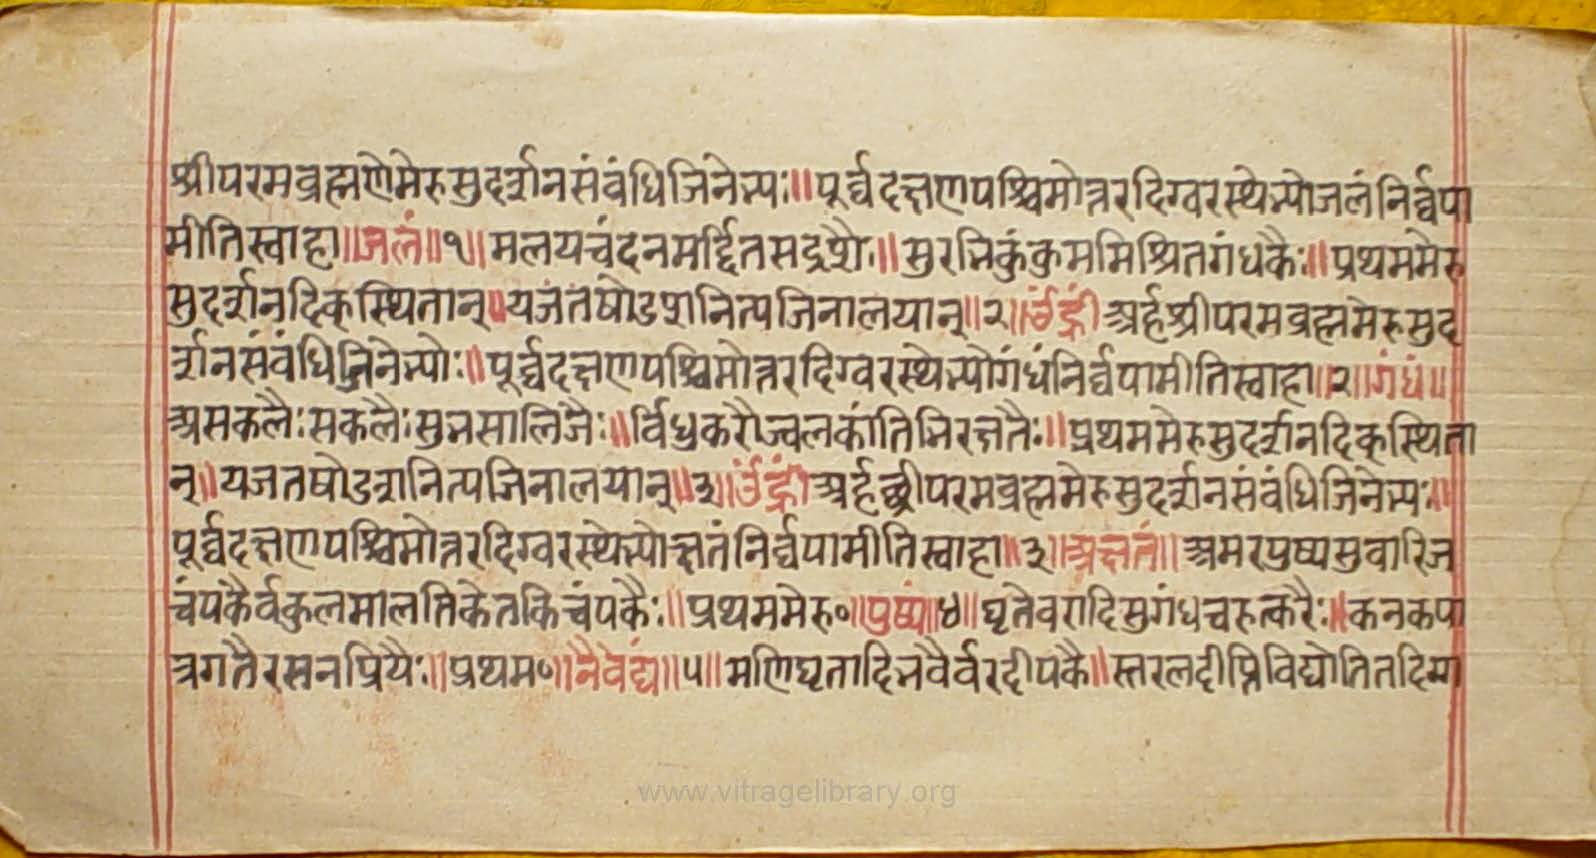 श्रीपरमब्रह्मणेमेरुसुदर्शनसंबंधिजिनेभ्यः॥पूर्व्वदक्षणपश्चिमोत्तरदिग्वरस्थेभ्योजलंनिर्व्वपा
मीतिस्वाहा॥जलं॥१॥मलयचंदनमर्द्दितसद्रशैः॥सुरभिकुंकुममिश्रितगंधकैः॥प्रथममेरु
सुदर्शनदिक्स्थितान्॥यजतषोडशनित्यजिनालयान्॥२॥ॐह्रीं अर्हंश्रीपरमब्रह्ममेरुसुद
र्शनसंबंधिजिनेभ्योः॥पूर्व्वदक्षणपश्चिमोत्तरदिग्वरस्थेभ्योगंधंनिर्व्वपामीतिस्वाहा॥२॥गंधं॥
असकलैःसकलैःसुभसालिजैः॥र्विधुकरौज्वलकांतिभिरक्षतैः॥प्रथममेरुसुदर्शनदिक्स्थिता
न्॥यजतषोडशनित्यजिनालयान्॥३॥ॐह्रीं अर्हंछ्रीपरमब्रह्ममेरुसुदर्शनसंबंधिजिनेभ्यः॥
पूर्व्वदक्षणपश्चिमोत्तरदिग्वरस्थेभ्योक्षतंनिर्व्वपामीतिस्वाहा॥३॥अक्षतं॥अमरपुष्पसुवारिज
चंपकैर्वकुलमालतिकेतकिचंपकैः॥प्रथममेरु०॥पुष्पं॥४॥घृतेवरादिसुगंधचरुत्करैः॥कनकपा
त्रगतैरसनप्रियैः॥प्रथम०॥नैवेद्यं॥५॥मणिघृतादिनवैर्वरदीपकै॥स्तरलदीप्तिविद्योतितदिग्ग
www.vitragelibrary.org